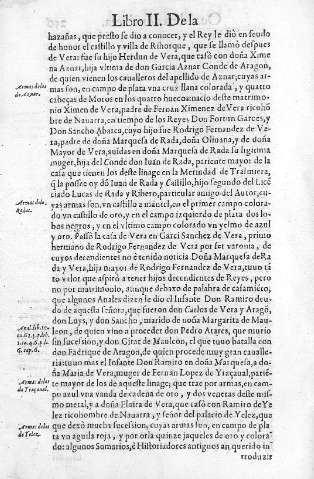 Libro II. De la
hazañas, que presto se dio a conocer, y el Rey le diò en feudo
de honor el castillo y villa de Rihosque, que se llamò despues
de Vera: fue su hijo Herdun de Vera, que casò con doña Ximena
Aznar, hija vltima de don Garcia Aznar Conde de Aragon,
de quien vienen los caualleros del apellido de Aznar; cuyas armas
Armas de los de Aznar.
son, en campo de plata vna cruz llana colorada, y quatro
cabeças de Moros en los quatro huecos: nacio deste matrimonio
Ximenez de Vera, padre de Fernan Ximenez de Vera ricohombre
de Nauarra, en tiempo de los Reyes Don Fortun Garces, y
Don Sancho Abarca, cuyo hijo fue Rodrigo Fernandez de Vera,
padre de doña Marquesa de Rada, doña Oliuana, y de doña
Mayor de Vera, auidas en doña Marquesa de Rada su legitima
muger, hija del Conde don Iuan de Rada, pariente mayor de la
casa que tienen los deste linage en la Merindad de Trasmiera,
q la possee oy dō Iuan de Rada y Castillo, hijo segundo del Licēciado
Lucas de Rada y Ribero, particular amigo del Autor, cuyas
Armas de los Radas.
armas son, vn castillo a mantel, en el primer campo colorado
vn castillo de oro, y en el campo izquierdo de plata dos lobos
negros, y en el vltimo campo colorado vn yelmo de azul
y oro. Passò la casa de Vera en Garci Sanchez de Vera, primo
hermano de Rodrigo Fernandez de Vera por ser varonia, de
cuyos decendientes no è tenido noticia Doña Marquesa de Rada
y Vera, hija mayor de Rodrigo Fernandez de Vera, tuuo tāto
valor que aspirò a tener hijos decendientes de Reyes, pero
no por matrimonio, aunque debaxo de palabra de casamiēto,
que algunos Anales dizen le diò el Infante Don Ramiro deudo
de aquesta señora, que fueron don Carlos de Vera y Aragō,
don Luys, y don Sancho, marido de doña Margarita de Mauleon,
de quien vino a proceder don Pedro Atares, que murio
sin sucession, y don Girat de Mauleon, el que tuuo batalla con
don Fadrique de Aragon, de quien procede muy gran caualleria:
tuuo mas el Infante Don Ramiro en doña Marquesa, a doña
Maria de Vera, muger de Fernan Lopez de Yraçaual, pariēte
mayor de los de aqueste linage, que trae por armas, en campo
Armas de los de Yraçaual.
azul vna vanda de cadena de oro, y dos venetas deste mismo
metal, y a doña Eluira de Vera, que casò con Ramiro de Yelez
ricohombre de Nauarra, y señor del palacio de Yelez, que
que dexò mucha sucession, cuyas armas son, en campo de plata
Armas de los de Yelez.
vn aguila roja, y por orla quinze jaqueles de oro y colorado:
algunos Sumarios, è Historiadores antiguos an querido introduzir